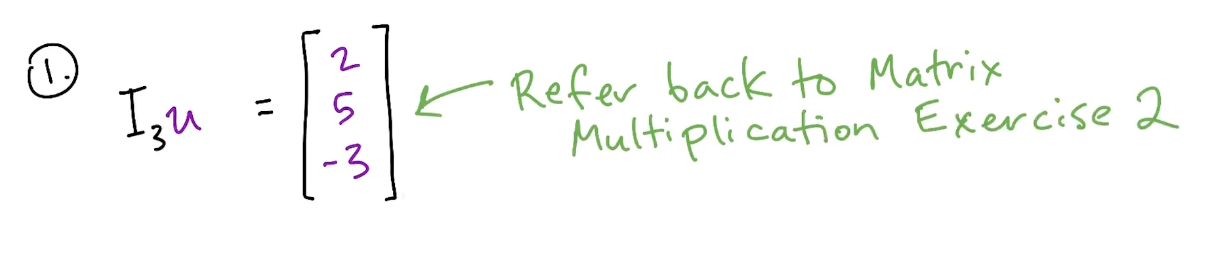 1.
I₃u = [2 5 -3] Refer back to Matrix
Multiplication Exercise 2